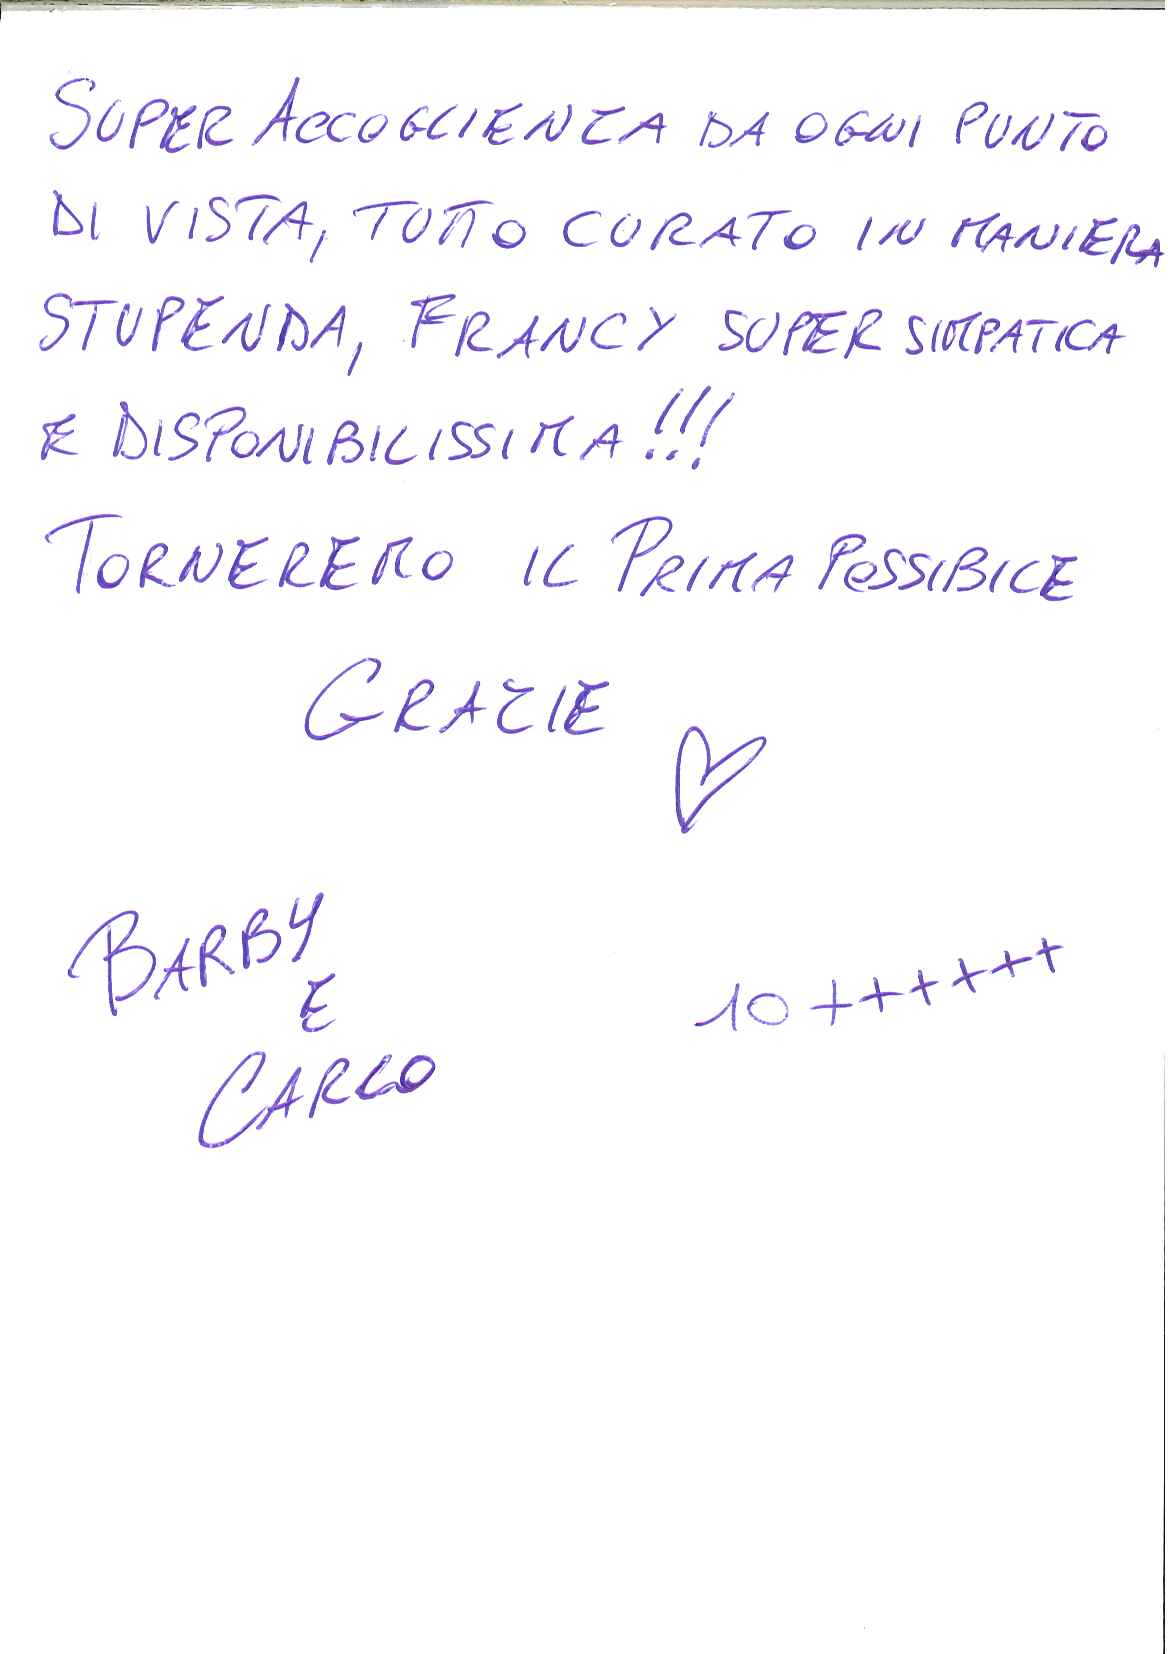 SUPER ACCOGLIENZA DA OGNI PUNTO
DI VISTA, TUTTO CURATO IN MANIERA
STUPENDA, FRANCY SUPER SIMPATICA
E DISPONIBILISSIMA!!!
TORNEREMO IL PRIMA POSSIBILE
GRAZIE
BARBY
E
CARLO
10 ++++++